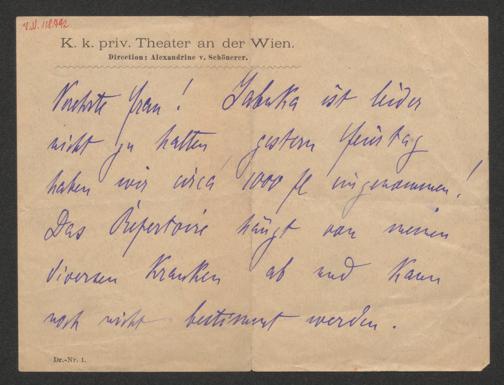 I.N. 118.742
K. k. priv. Theater an der Wien.
Direction: Alexandrine v. Schönerer.
Verehrte Frau! Jabuka ist leider
nicht zu halten gestern Feiertag
haben wir circa 1000 fl eingenommen!
Das Repertoire hängt von meinen
diversen Kranken ab und kann
noch nicht bestimmt werden.
Dr.-Nr. 1.